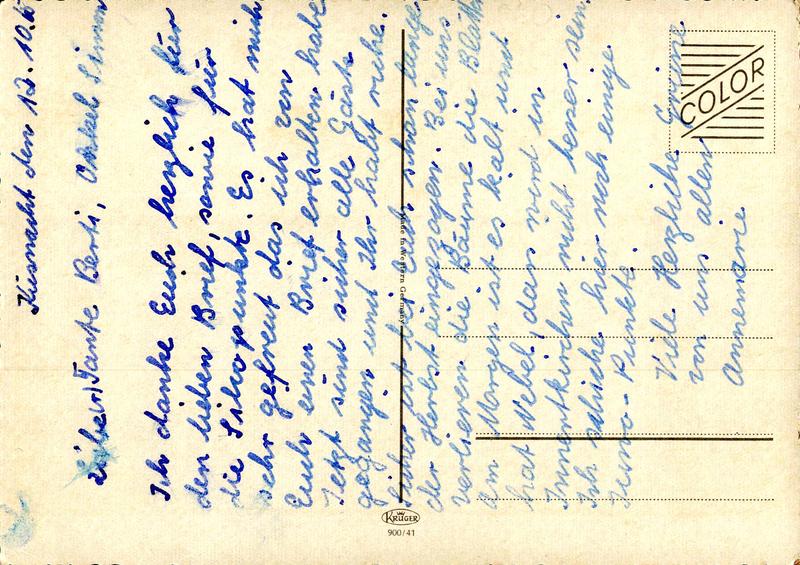 Küsnacht den 12. 10. 6
Liebe(r) Tante Berti, Onkel Simon
Ich danke Euch herzlich für
den lieben Brief, sowie für
die Silvopunkte. Es hat mich
sehr gefreut das ich von
Euch einen Brief erhalten habe
Jetzt sind sicher alle Gäste
gegangen und Ihr habt ruhe.
Sicher ist bei Euch schon lange
der Herbst eingezogen. Bei uns
verlieren die Bäume die Blätt
Am Morgen ist es kalt und
hat Nebel, dass wird in
Innertkirchen nicht besser sein.
Ich schicke hier noch einige
Juwo-Punkte.
Viele Herzliche Grüsse
von uns allen
Annemarie
COLOR
Made in Western Germany
KRÜGER
900/41